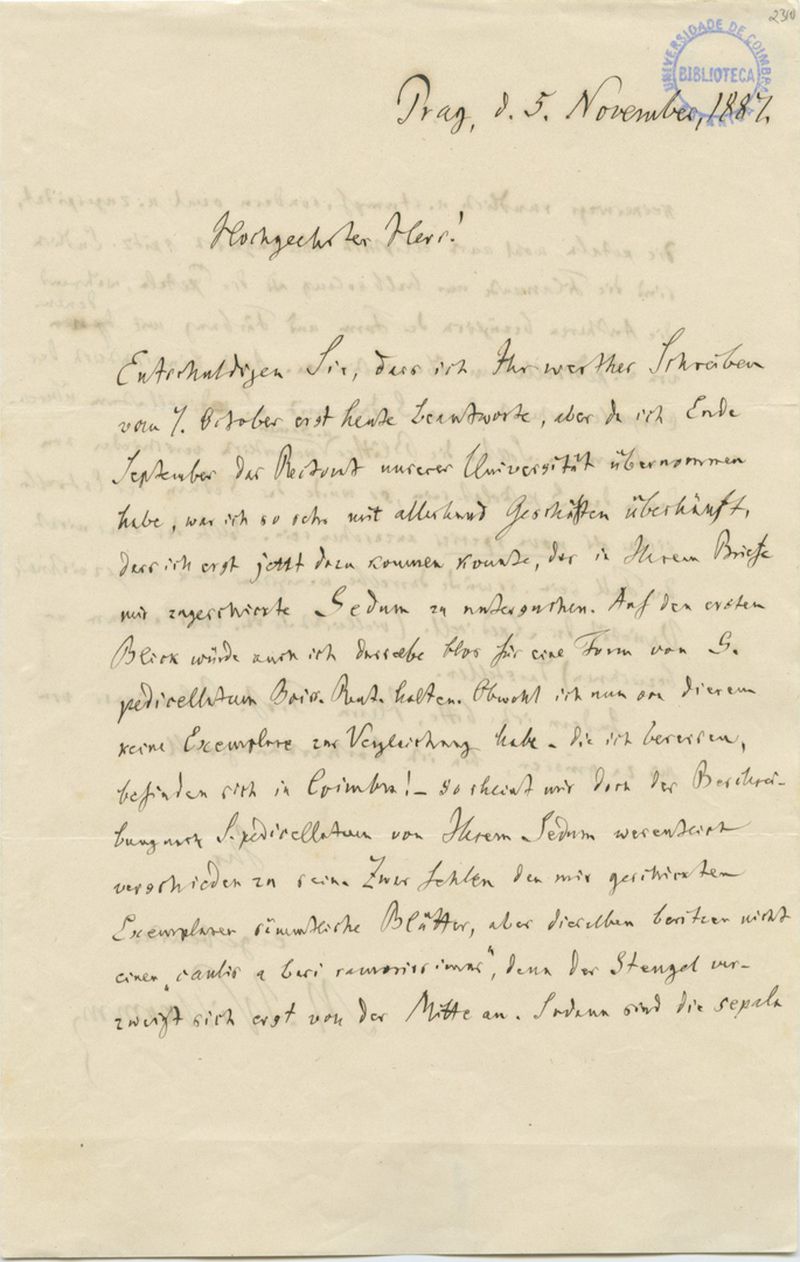 2310
UNIVERSIDADE DE COIMBRA
BIBLIOTECA
Prag, d. 5. November, 1887.
Hochgeehrter Herr!
Entschuldigen Sie, dass ich Ihr werthes Schreiben
vom 7. October erst heute beantworte, aber da ich Ende
September das Rectorat unserer Universität übernommen
habe, war ich so sehr mit allerhand Geschäften überhäuft,
dass ich erst jetzt dazu kommen konnte, das in Ihrem Briefe
mir zugeschickte Sedum zu untersuchen. Auf den ersten
Blick würde auch ich dasselbe blos für eine Form von S.
pedicellatum Boiss. Reut. halten. Obwohl ich nun von diesem
keine Exemplare zur Vergleichung habe – die ich besessen,
befinden sich in Coimbra! – so scheint mir doch der Beschrei-
bung nach S. pedicellatum von Ihrem Sedum wesentlich
verschieden zu sein. Zwar fehlen den mir geschickten
Exemplaren sämmtliche Blätter, aber dieselben besitzen nicht
einen „caulis a basi ramosissimus", denn der Stengel ver-
zweigt sich erst von der Mitte an. Sodann sind die sepala